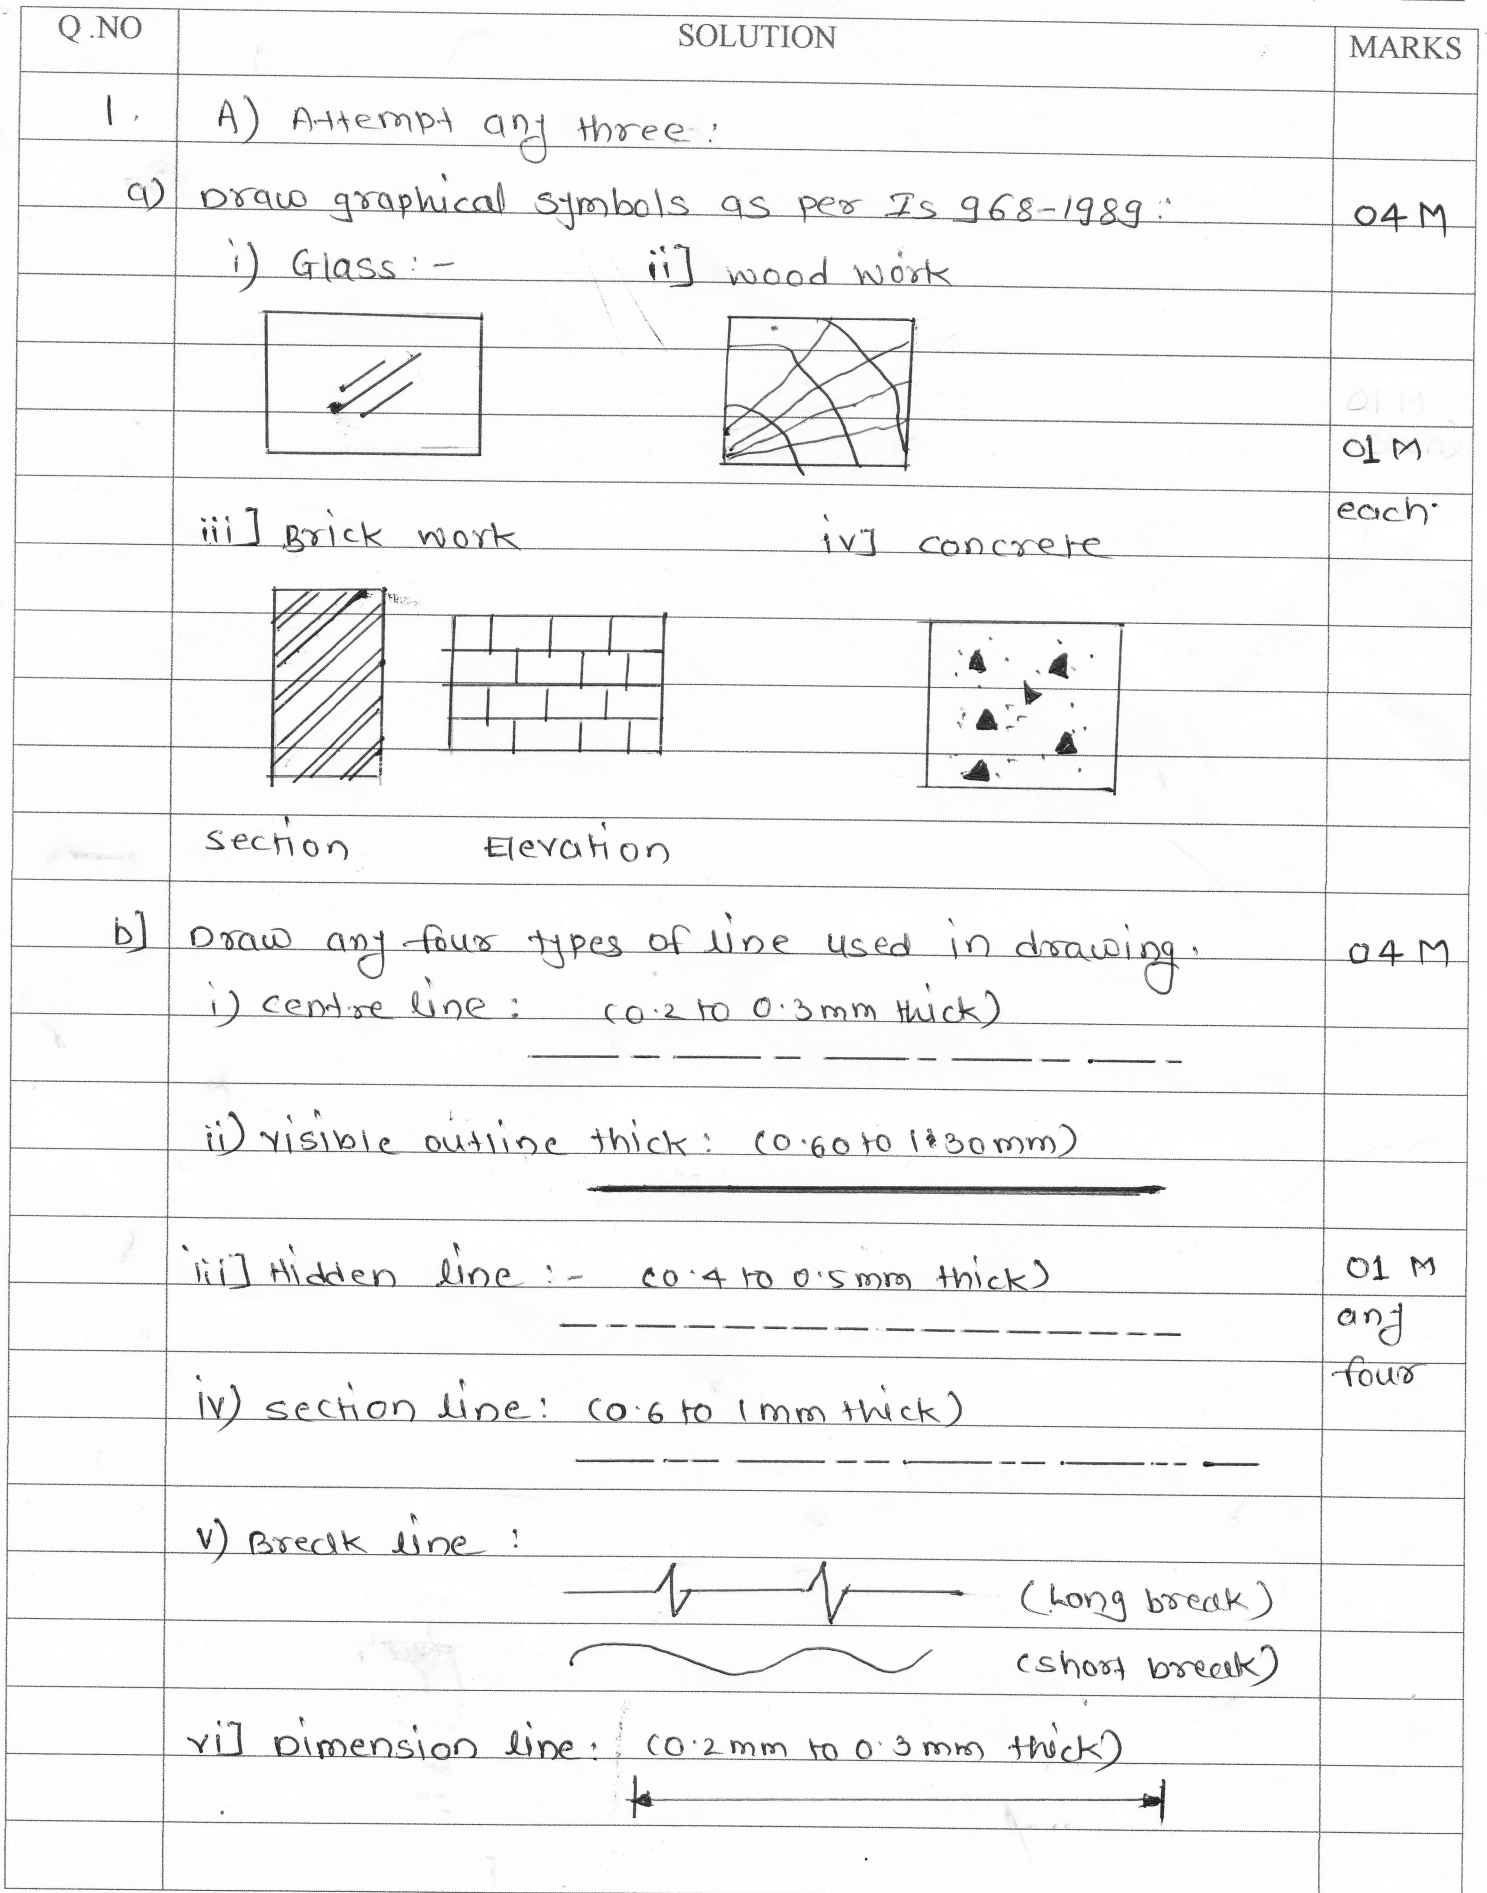 Q.NO SOLUTION MARKS
1. A) Attempt any three:
a) Draw graphical symbols as per Is 968-1989: 04 M
i) Glass:- ii] wood work
01 M
each.
iii] Brick work iv] concrete
section Elevation
b] Draw any four types of line used in drawing. 04 M
i) centre line: (0.2 to 0.3mm thick)
ii) visible outline thick: (0.60 to 1.30mm)
iii] Hidden line:- (0.4 to 0.5mm thick) 01 M
any
four
iv) section line: (0.6 to 1mm thick)
v) Break line:
(Long break)
(short break)
vi] Dimension line: (0.2mm to 0.3mm thick)